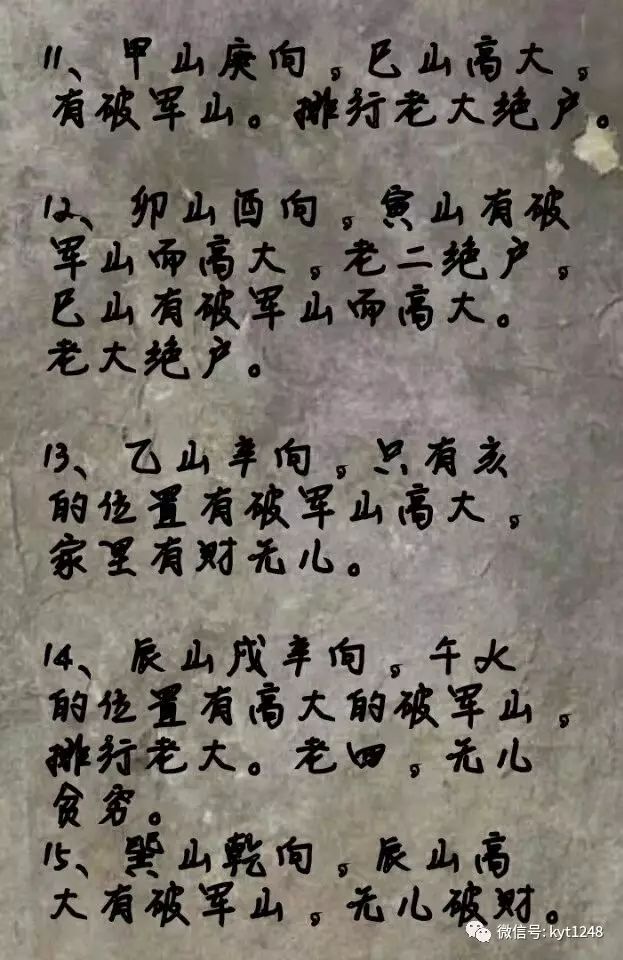 11、甲山庚向，巳山高大，
有破军山。排行老大绝户。
12、卯山酉向，寅山有破
军山而高大，老二绝户，
巳山有破军山而高大。
老大绝户。
13、乙山辛向，只有亥
的位置有破军山高大，
家里有财无儿。
14、辰山戌辛向，午火
的位置有高大的破军山，
排行老大。老四，无儿
贫穷。
15、巽山乾向，辰山高
大有破军山，无儿破财。
微信号: kyt1248